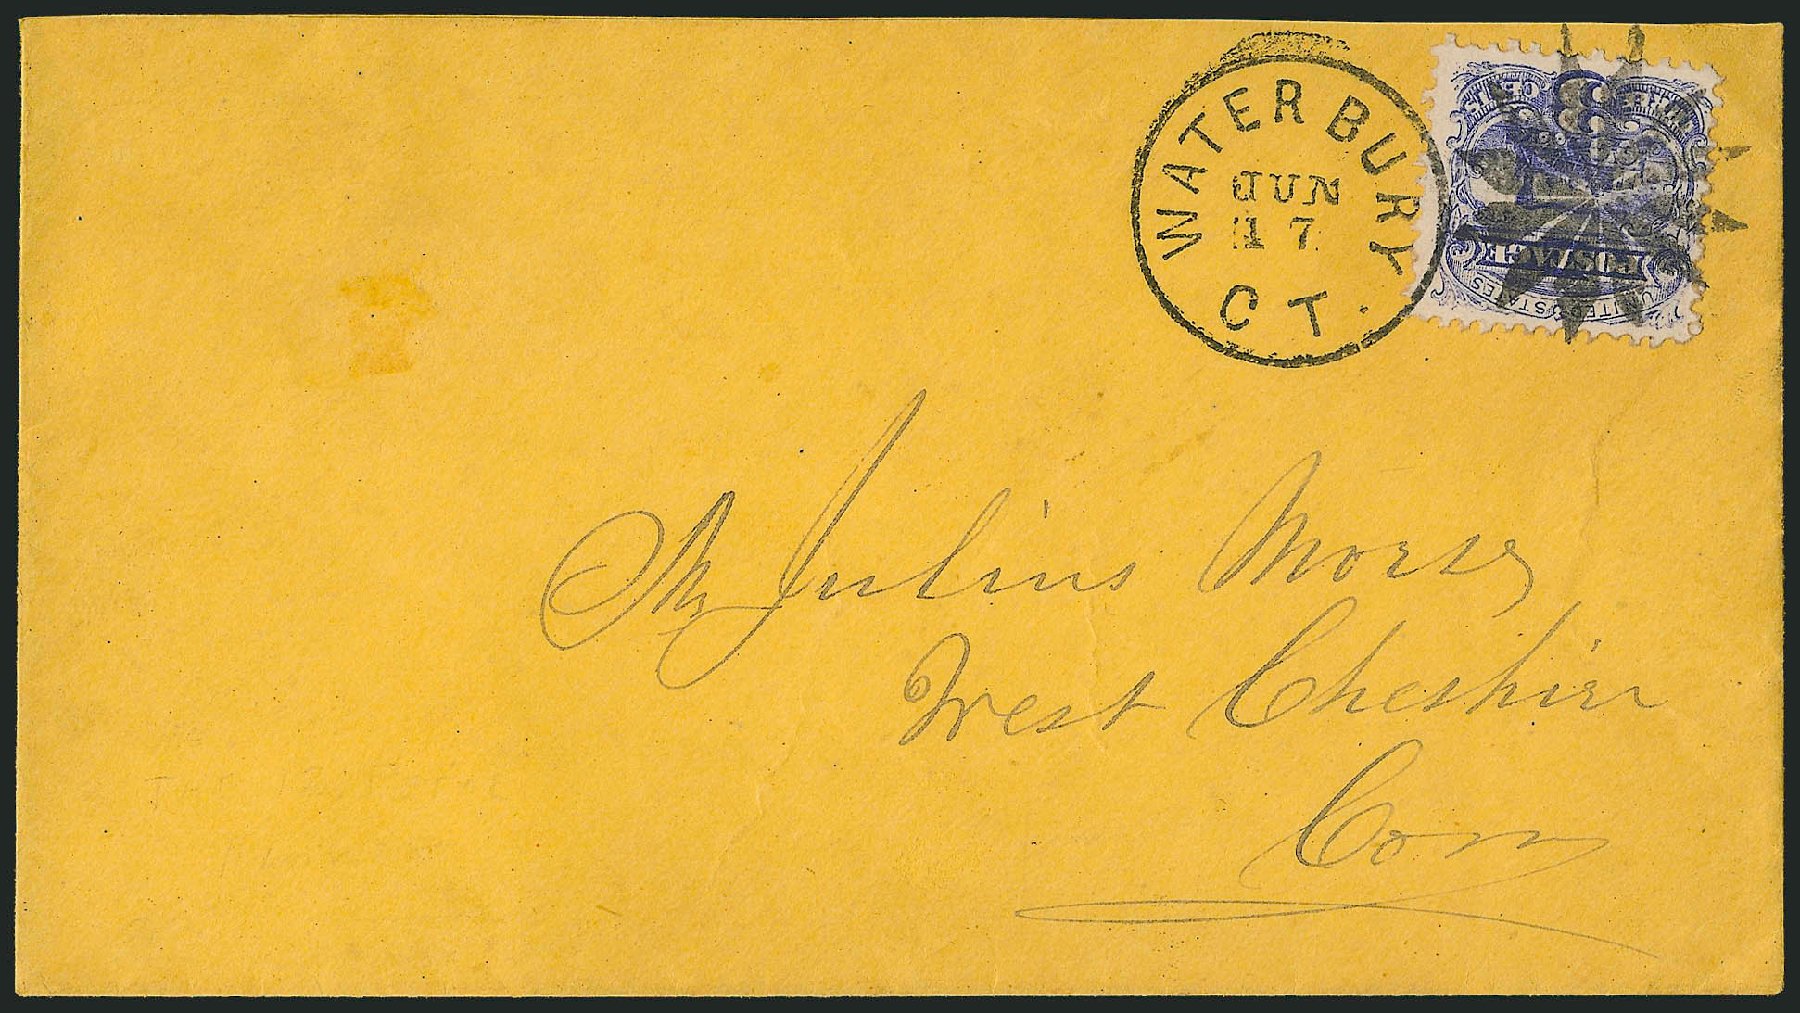 WATERBURY
JUN
17
CT.
UNITED STATES
POSTAGE
THREE CENTS
Mr Julius Morse
West Cheshire
Conn